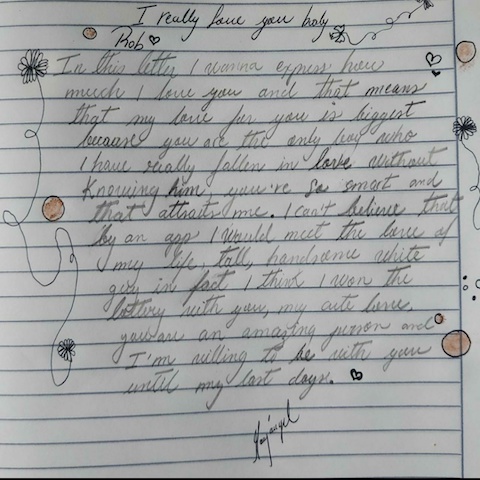 I really love you baby
Rob
In this letter I wanna express how
much I love you and that means
that my love for you is biggest
because you are the only boy who
I have really fallen in love without
Knowing him, you're so smart and
that attracts me. I can't believe that
by an app I would meet the love of
my life, tall, handsome white
guy in fact I think I won the
lottery with you, my cute love,
you are an amazing person and
I'm willing to be with you
until my last days.